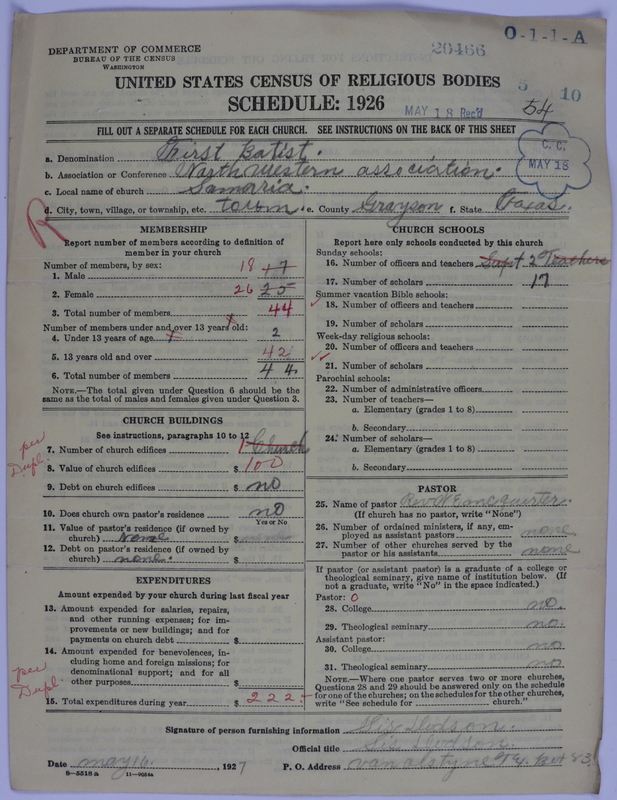 DEPARTMENT OF COMMERCE
BUREAU OF THE CENSUS
WASHINGTON
20466
O-1-1-A
UNITED STATES CENSUS OF RELIGIOUS BODIES
5 10
SCHEDULE: 1926
MAY 18 Rec'd
54
FILL OUT A SEPARATE SCHEDULE FOR EACH CHURCH. SEE INSTRUCTIONS ON THE BACK OF THIS SHEET
C. C.
MAY 18
a. Denomination First Batist.
b. Association or Conference North Western association.
c. Local name of church Samaria.
d. City, town, village, or township, etc. town. e. County Grayson f. State Texas.
R
MEMBERSHIP
Report number of members according to definition of member in your church
Number of members, by sex:
1. Male 18 17
2. Female 26 25
3. Total number of members 44
Number of members under and over 13 years old:
4. Under 13 years of age 2
5. 13 years old and over 42
6. Total number of members 44
NOTE.—The total given under Question 6 should be the
same as the total of males and females given under Question 3.
CHURCH BUILDINGS
See instructions, paragraphs 10 to 12
per Dupl.
7. Number of church edifices 1 Church
8. Value of church edifices $ 100
9. Debt on church edifices $ no
10. Does church own pastor's residence no
Yes or No
11. Value of pastor's residence (if owned by
church) None $
12. Debt on pastor's residence (if owned by
church) none. $
EXPENDITURES
Amount expended by your church during last fiscal year
13. Amount expended for salaries, repairs,
and other running expenses; for im-
provements or new buildings; and for
payments on church debt $
14. Amount expended for benevolences, in-
cluding home and foreign missions; for
denominational support; and for all
other purposes $
per Dupl.
15. Total expenditures during year $ 222.-
CHURCH SCHOOLS
Report here only schools conducted by this church
Sunday schools:
16. Number of officers and teachers Supt 2 Teachers
17. Number of scholars 17
Summer vacation Bible schools:
18. Number of officers and teachers
19. Number of scholars
Week-day religious schools:
20. Number of officers and teachers
21. Number of scholars
Parochial schools:
22. Number of administrative officers
23. Number of teachers—
a. Elementary (grades 1 to 8)
b. Secondary
24. Number of scholars—
a. Elementary (grades 1 to 8)
b. Secondary
PASTOR
25. Name of pastor Rev W E McQuirter.
(If church has no pastor, write "None")
26. Number of ordained ministers, if any, em-
ployed as assistant pastors none
27. Number of other churches served by the
pastor or his assistants none
If pastor (or assistant pastor) is a graduate of a college or
theological seminary, give name of institution below. (If
not a graduate, write "No" in the space indicated.)
Pastor: 0
28. College no.
29. Theological seminary no.
Assistant pastor:
30. College no
31. Theological seminary no
NOTE.—Where one pastor serves two or more churches,
Questions 28 and 29 should be answered only on the schedule
for one of the churches; on the schedules for the other churches,
write "See schedule for church."
Signature of person furnishing information Dodson.
Official title
Date may 16, 1927 P. O. Address van alstyne Tex. Box 83
8-5518 a